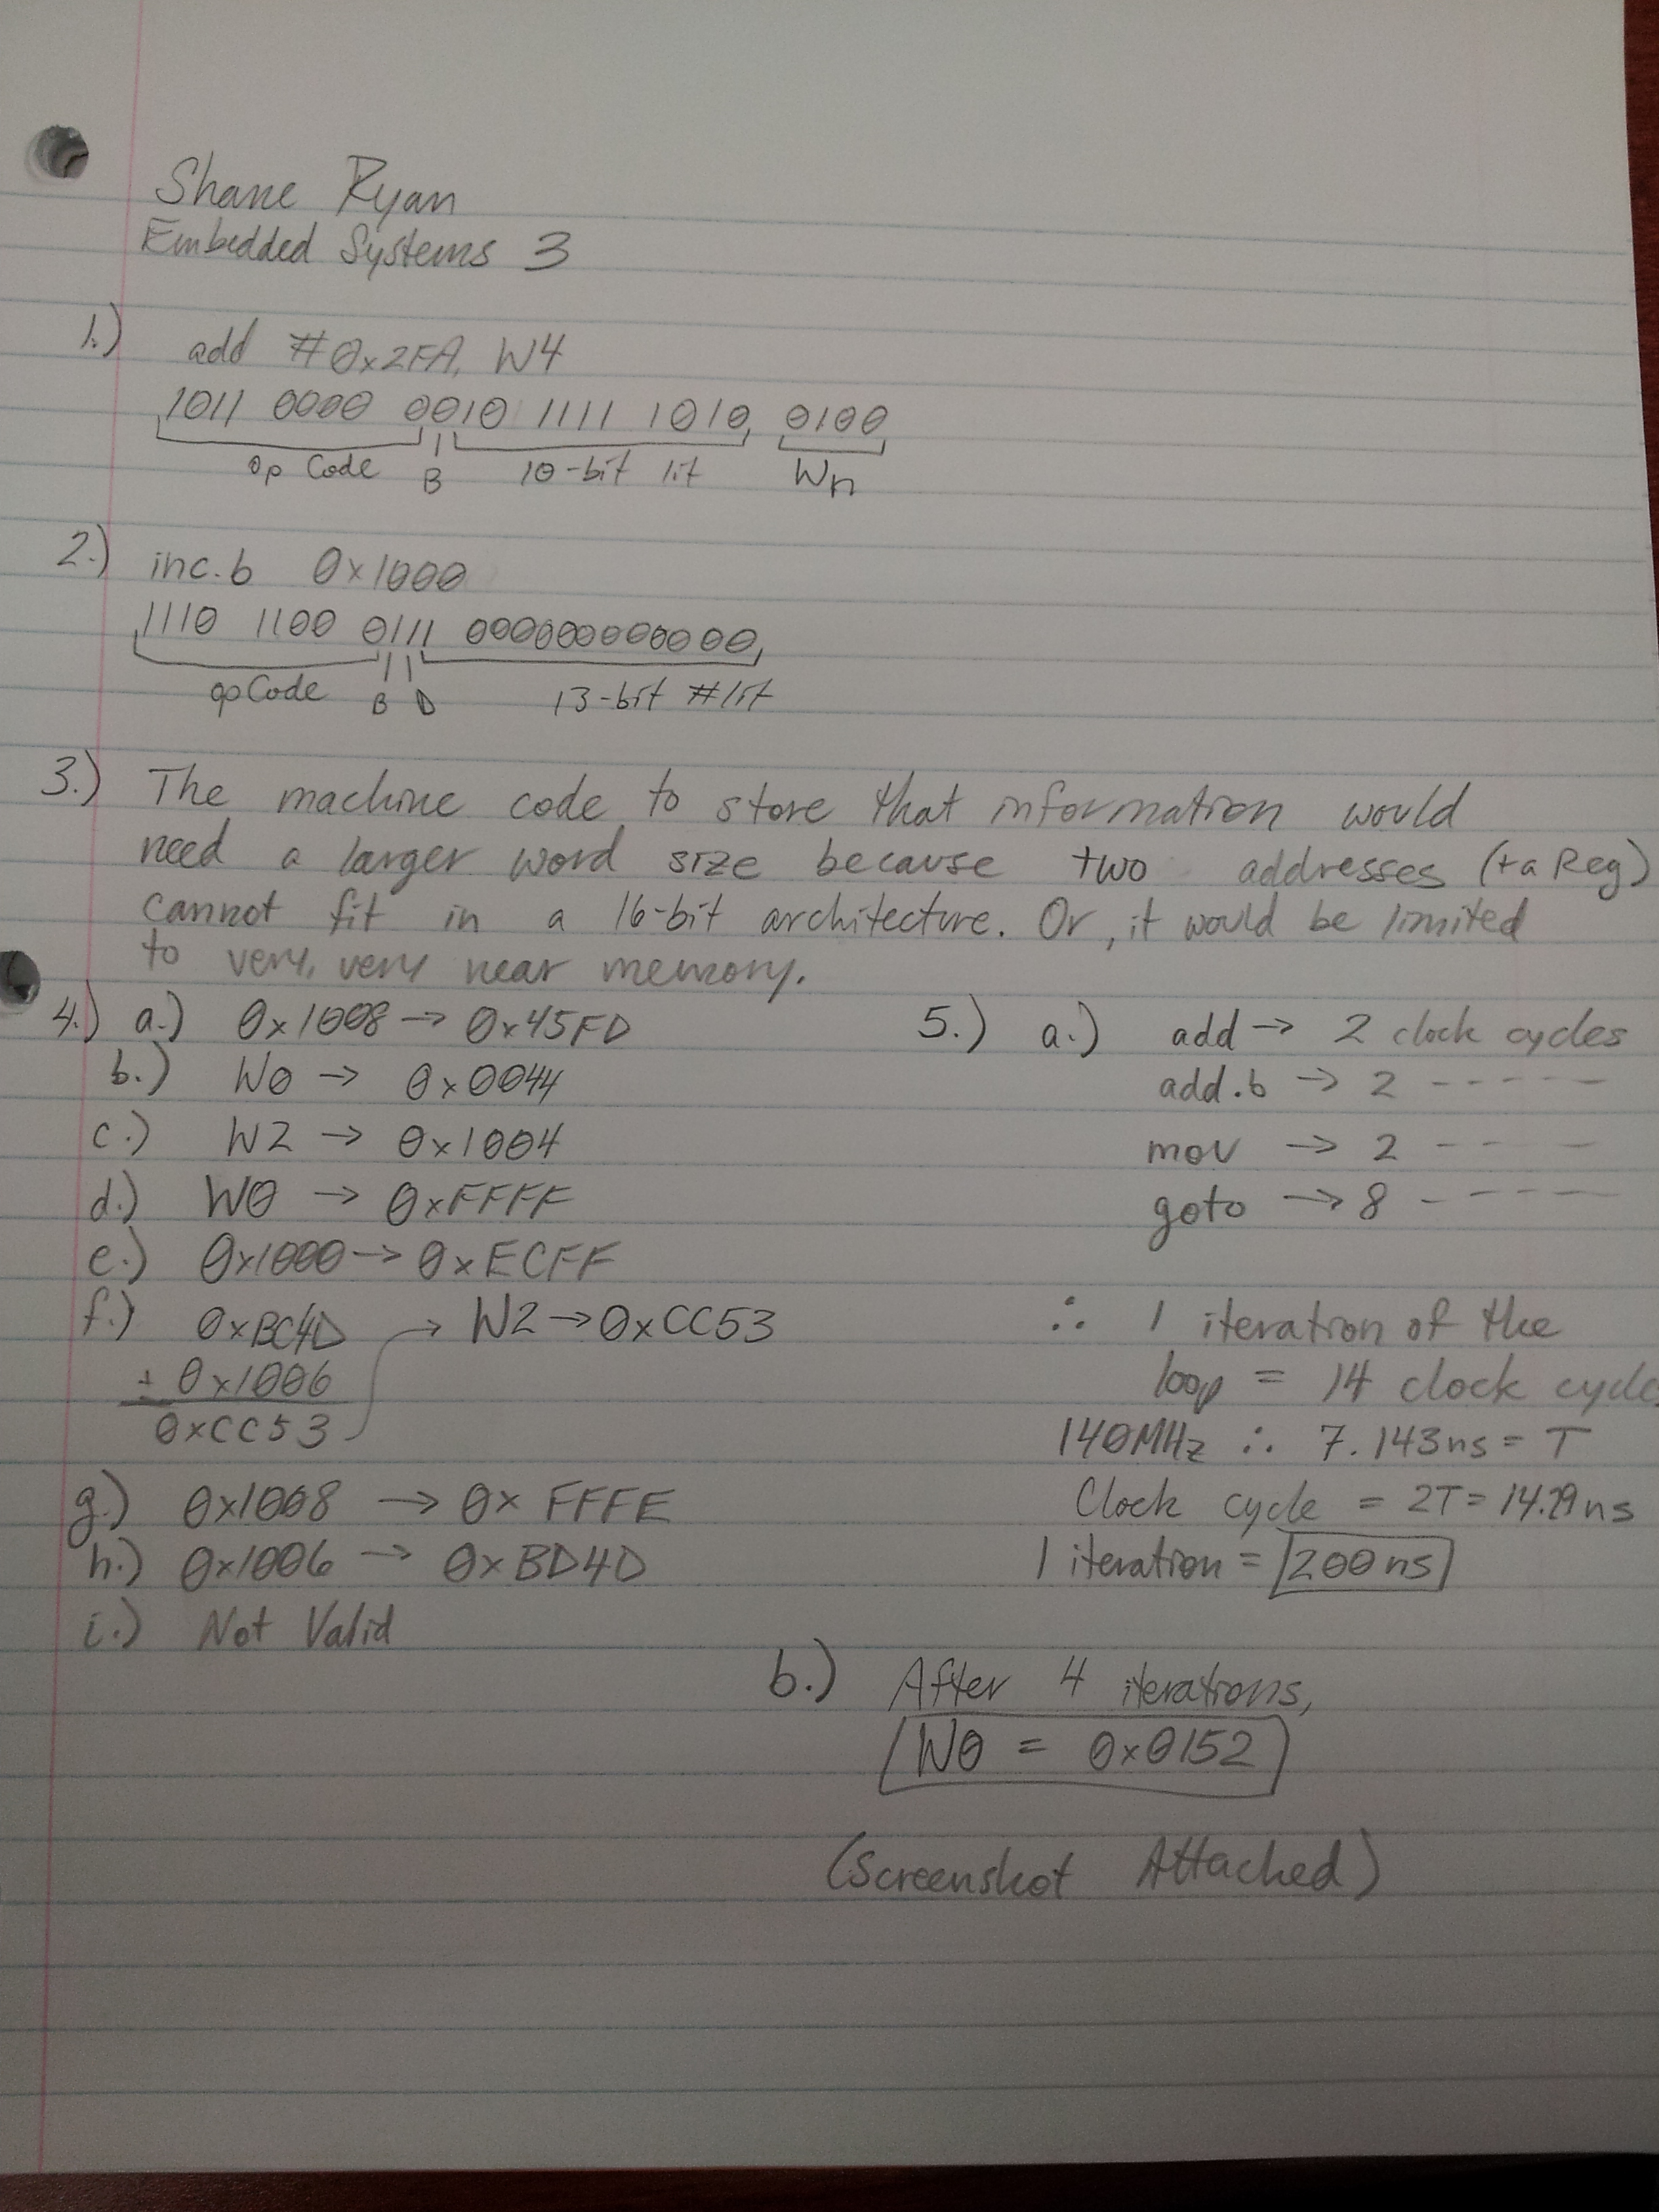 Shane Ryan
Embedded Systems 3
1.) add #0x2FA, W4
1011 0000 0010 1111 1010 0100
op Code B 10-bit lit Wn
2.) inc.b 0x1000
1110 1100 0111 000000000000
opCode B D 13-bit #lit
3.) The machine code to store that information would
need a larger word size because two addresses (+a Reg)
cannot fit in a 16-bit architecture. Or, it would be limited
to very, very near memory.
4.) a.) 0x1008 → 0x45FD
b.) W0 → 0x0044
c.) W2 → 0x1004
d.) W0 → 0xFFFF
e.) 0x1000 → 0xECFF
f.) 0xBC4D → W2 → 0xCC53
+ 0x1006
0xCC53
g.) 0x1008 → 0xFFFE
h.) 0x1006 → 0xBD4D
i.) Not Valid
5.) a.) add → 2 clock cycles
add.b → 2 -----
mov → 2 -- -
goto → 8 -----
∴ 1 iteration of the
loop = 14 clock cycle
140MHz ∴ 7.143ns = T
Clock cycle = 2T = 14.29ns
1 iteration = 200ns
b.) After 4 iterations,
W0 = 0x0152
(Screenshot Attached)